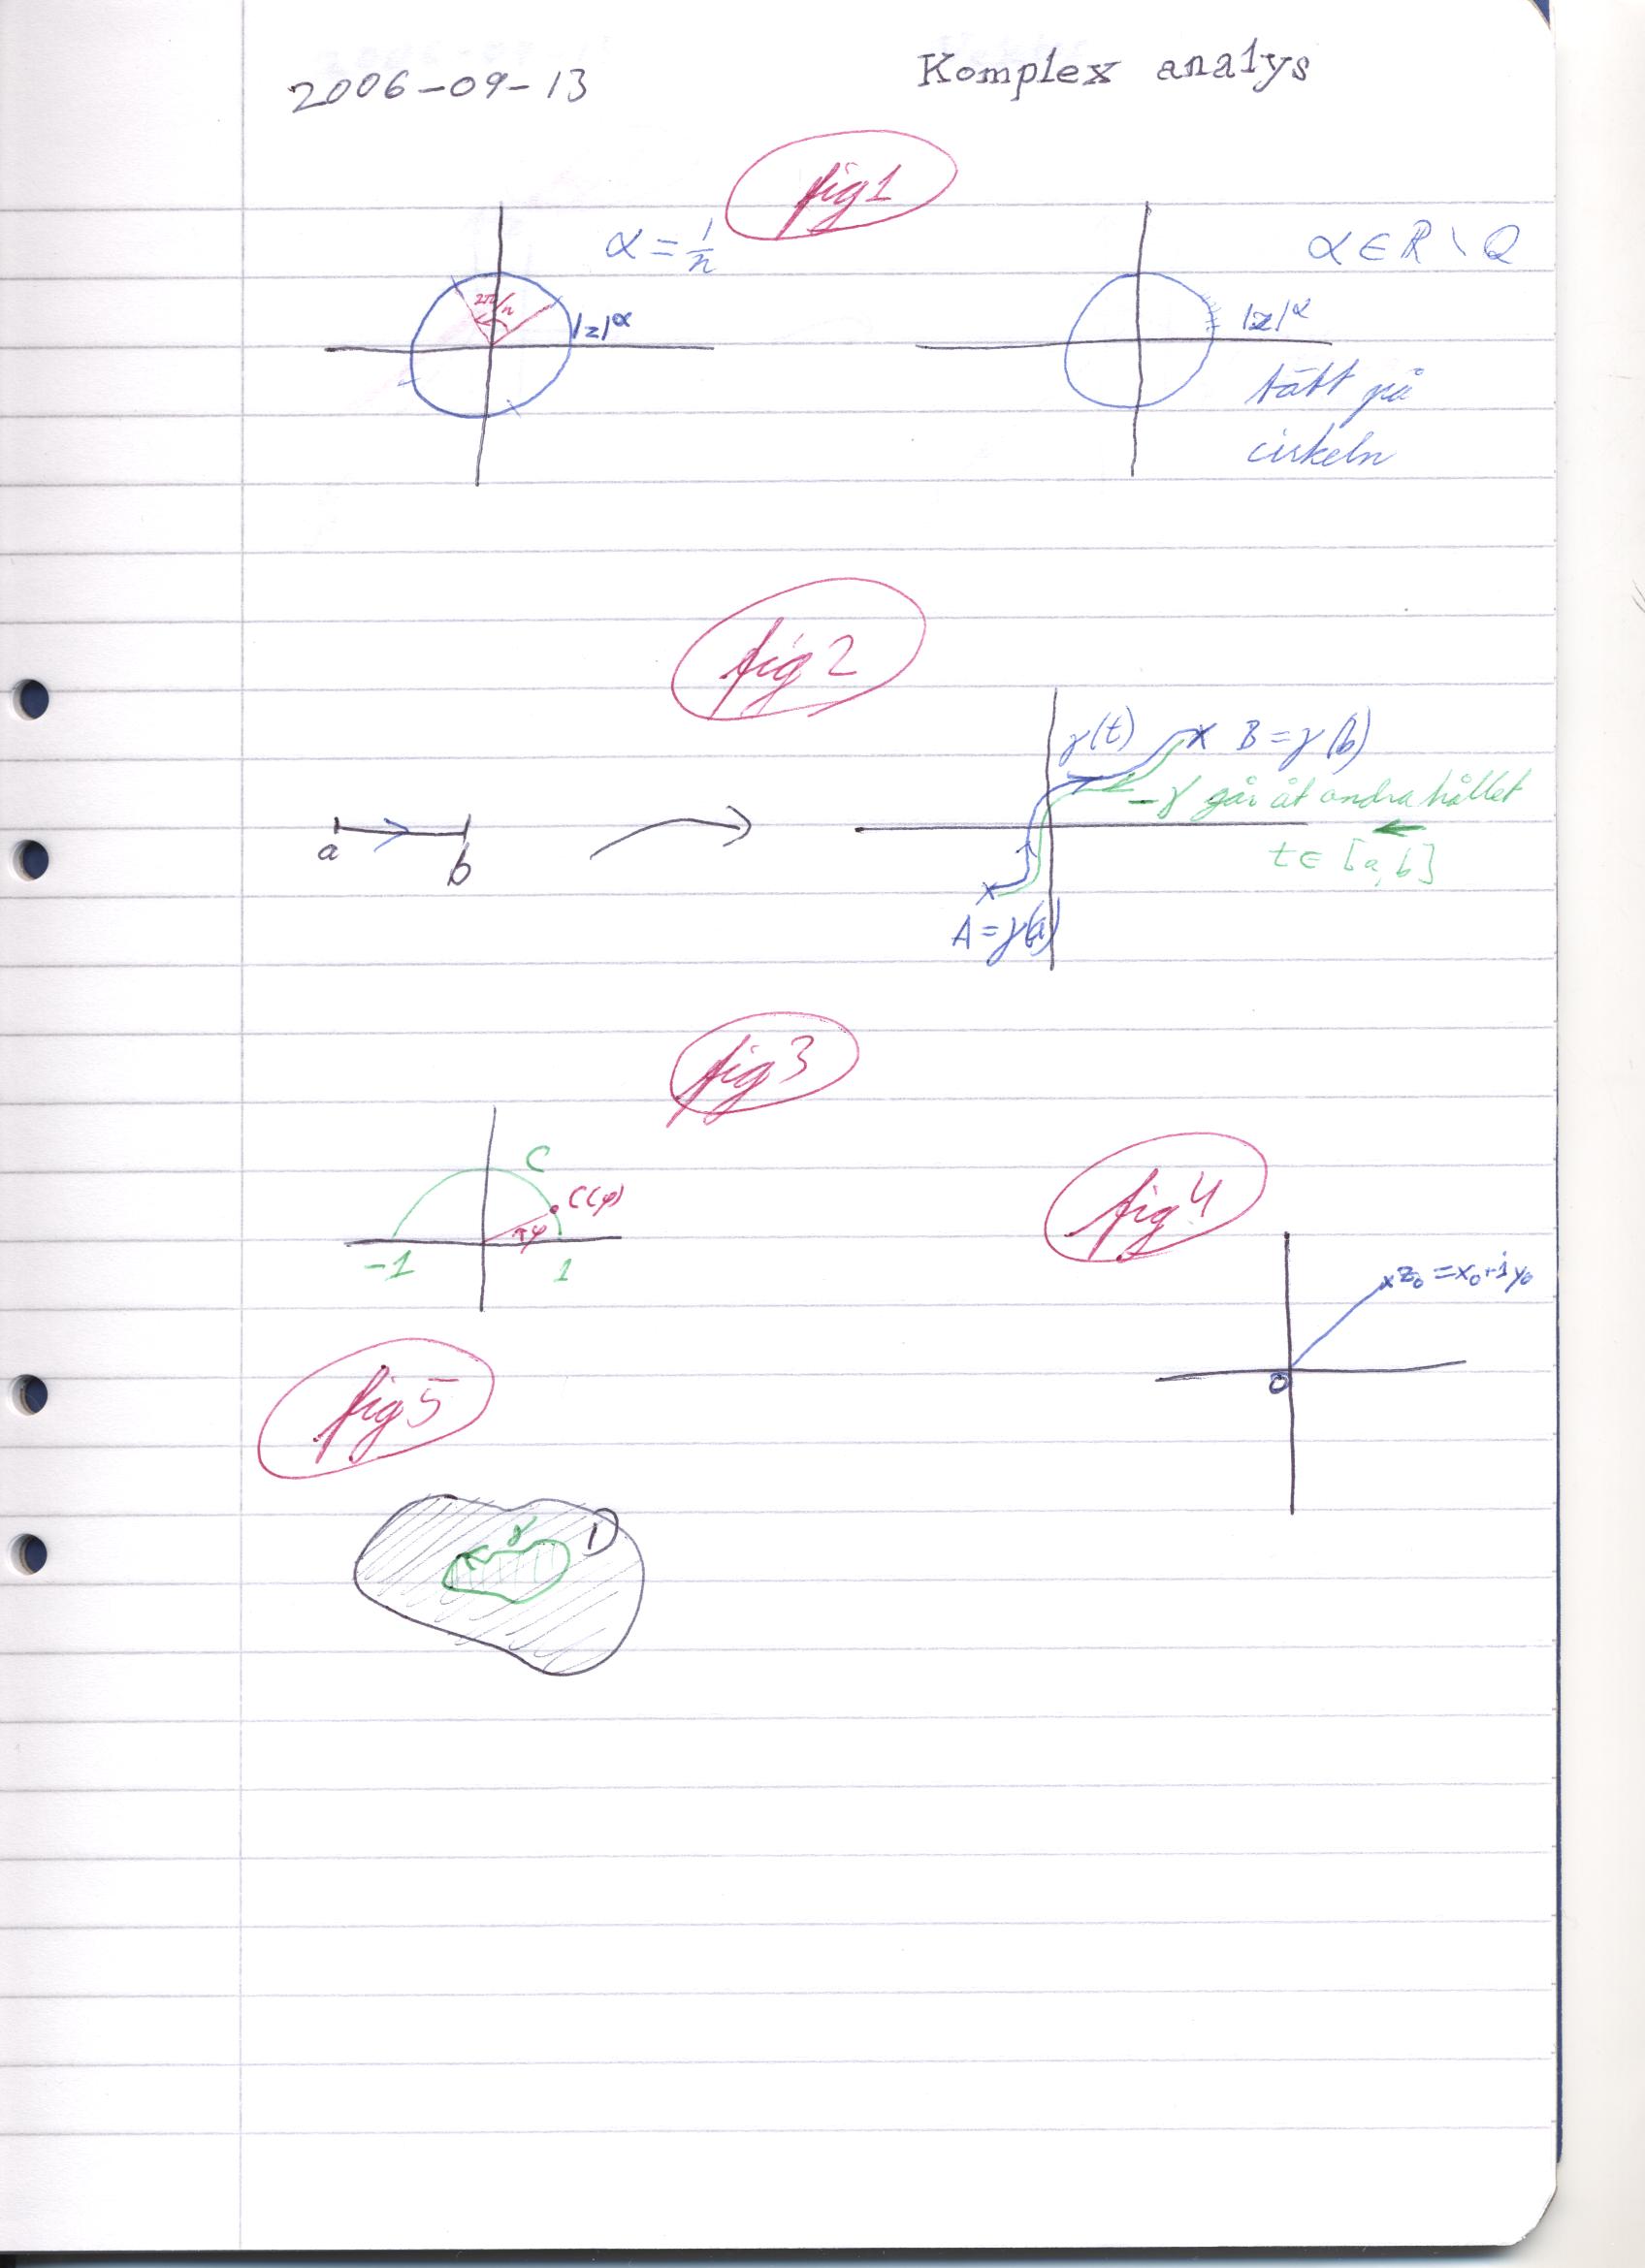 2006-09-13 Komplex analys
fig 1
α = 1/n
α ∈ ℝ \ Q
2π/n
|z|^α
|z|^α
tätt på
cirkeln
fig 2
γ(t)
B = γ(b)
-γ går åt andra hållet
a
b
t ∈ [a, b]
A = γ(a)
fig 3
C
C(φ)
φ
-1
1
fig 4
z₀ = x₀ + i y₀
0
fig 5
γ
D